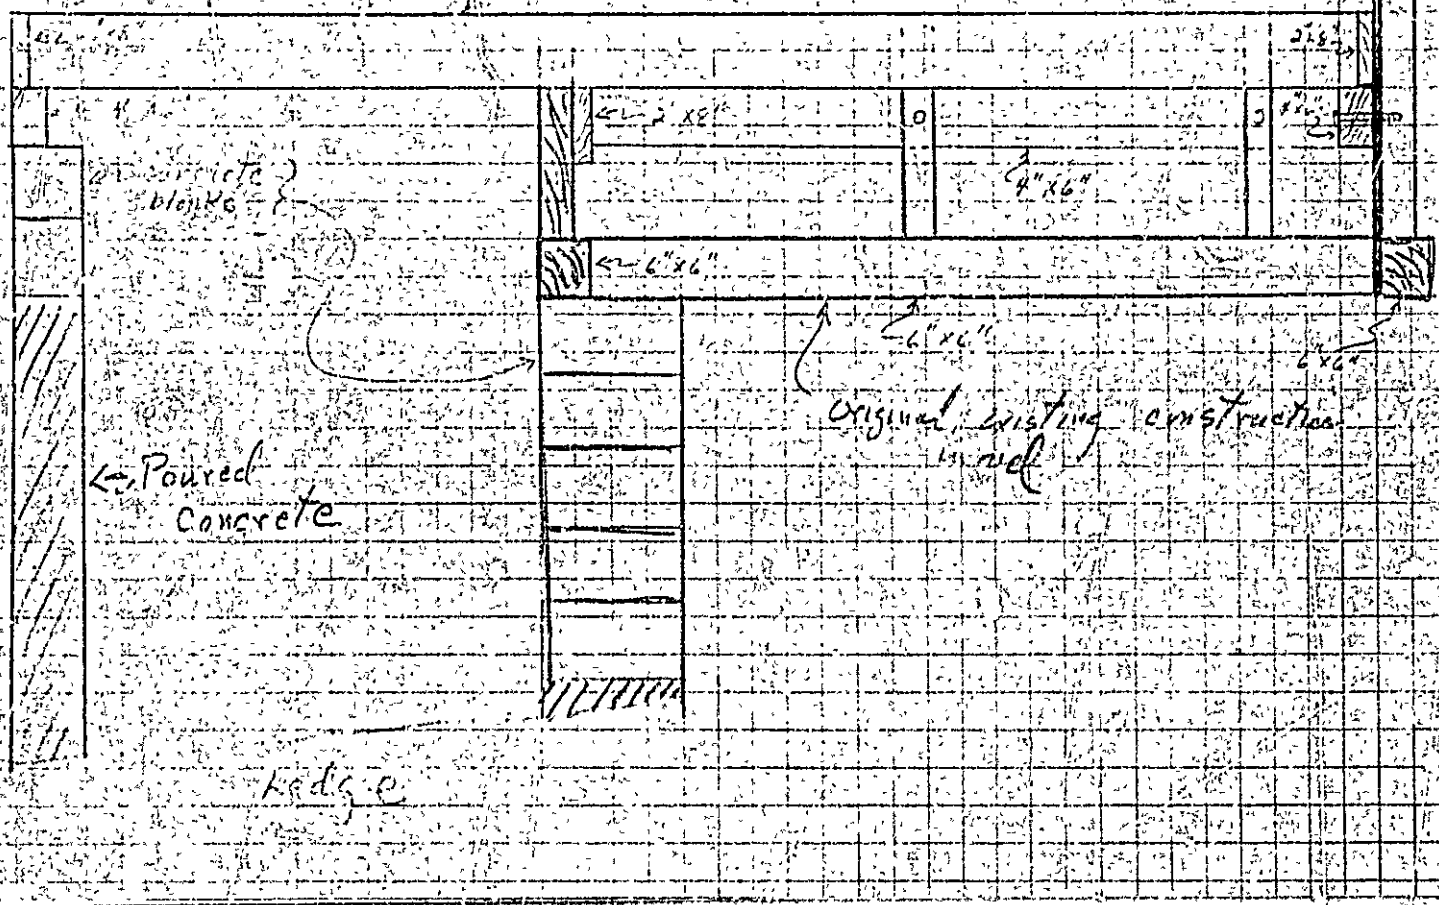 2x8"
2"x8"
concrete
blocks
4"x6"
6"x6"
6"x6"
6"x6"
Original existing construction
Poured
Concrete
Ledge